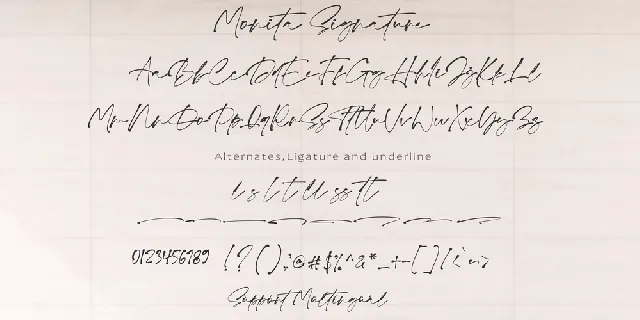 Monita Signature
AaBbCcDdEeFfGgHhIiJjKkLl
MmNnOoPpQqRrSsTtUuVvWwXxYyZz
Alternates, Ligature and underline
e s l t ll ss tt
0123456789 (?();:@#$%^&*_+-[]/¿«»>
Support Multilingual